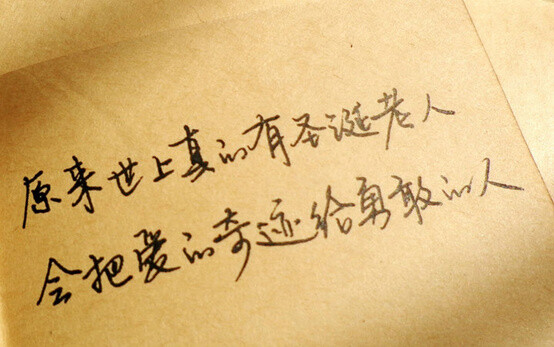 原来世上真的有圣诞老人
会把爱的奇迹给勇敢的人